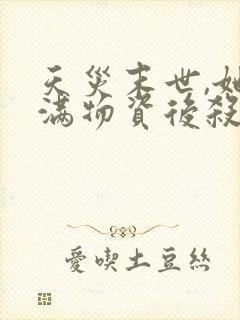 天災末世,她
滿物資後殺
愛喫土豆絲